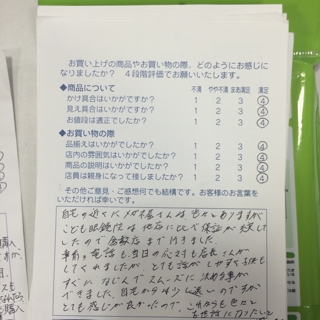 お買い上げの商品やお買い物の際、どのようにお感じに
なりましたか？ 4段階評価でお願いいたします。
◆商品について 不満 やや不満 まあ満足 満足
かけ具合はいかがですか？ 1 2 3 4
見え具合はいかがですか？ 1 2 3 4
お値段は適正でしたか？ 1 2 3 4
◆お買い物の際
品揃えはいかがでしたか？ 1 2 3 4
店内の雰囲気はいかがですか？ 1 2 3 4
商品の説明はいかがでしたか？ 1 2 3 4
店員は親身になって接しましたか？ 1 2 3 4
その他ご意見・ご感想何でも結構です。お客様のお言葉を
いただければ幸いです。
自宅の近くにメガネ屋さんは色々ありますが
こども眼鏡は他店に比べて保証が充実して
したので倉敷店まで行きました。
事前の電話も当日の応対も店長さんが
してくれましたが、とても話がしやすくお店も
すぐに
できました。自宅から少し遠いのですが
とても感じが良かったので、これからも